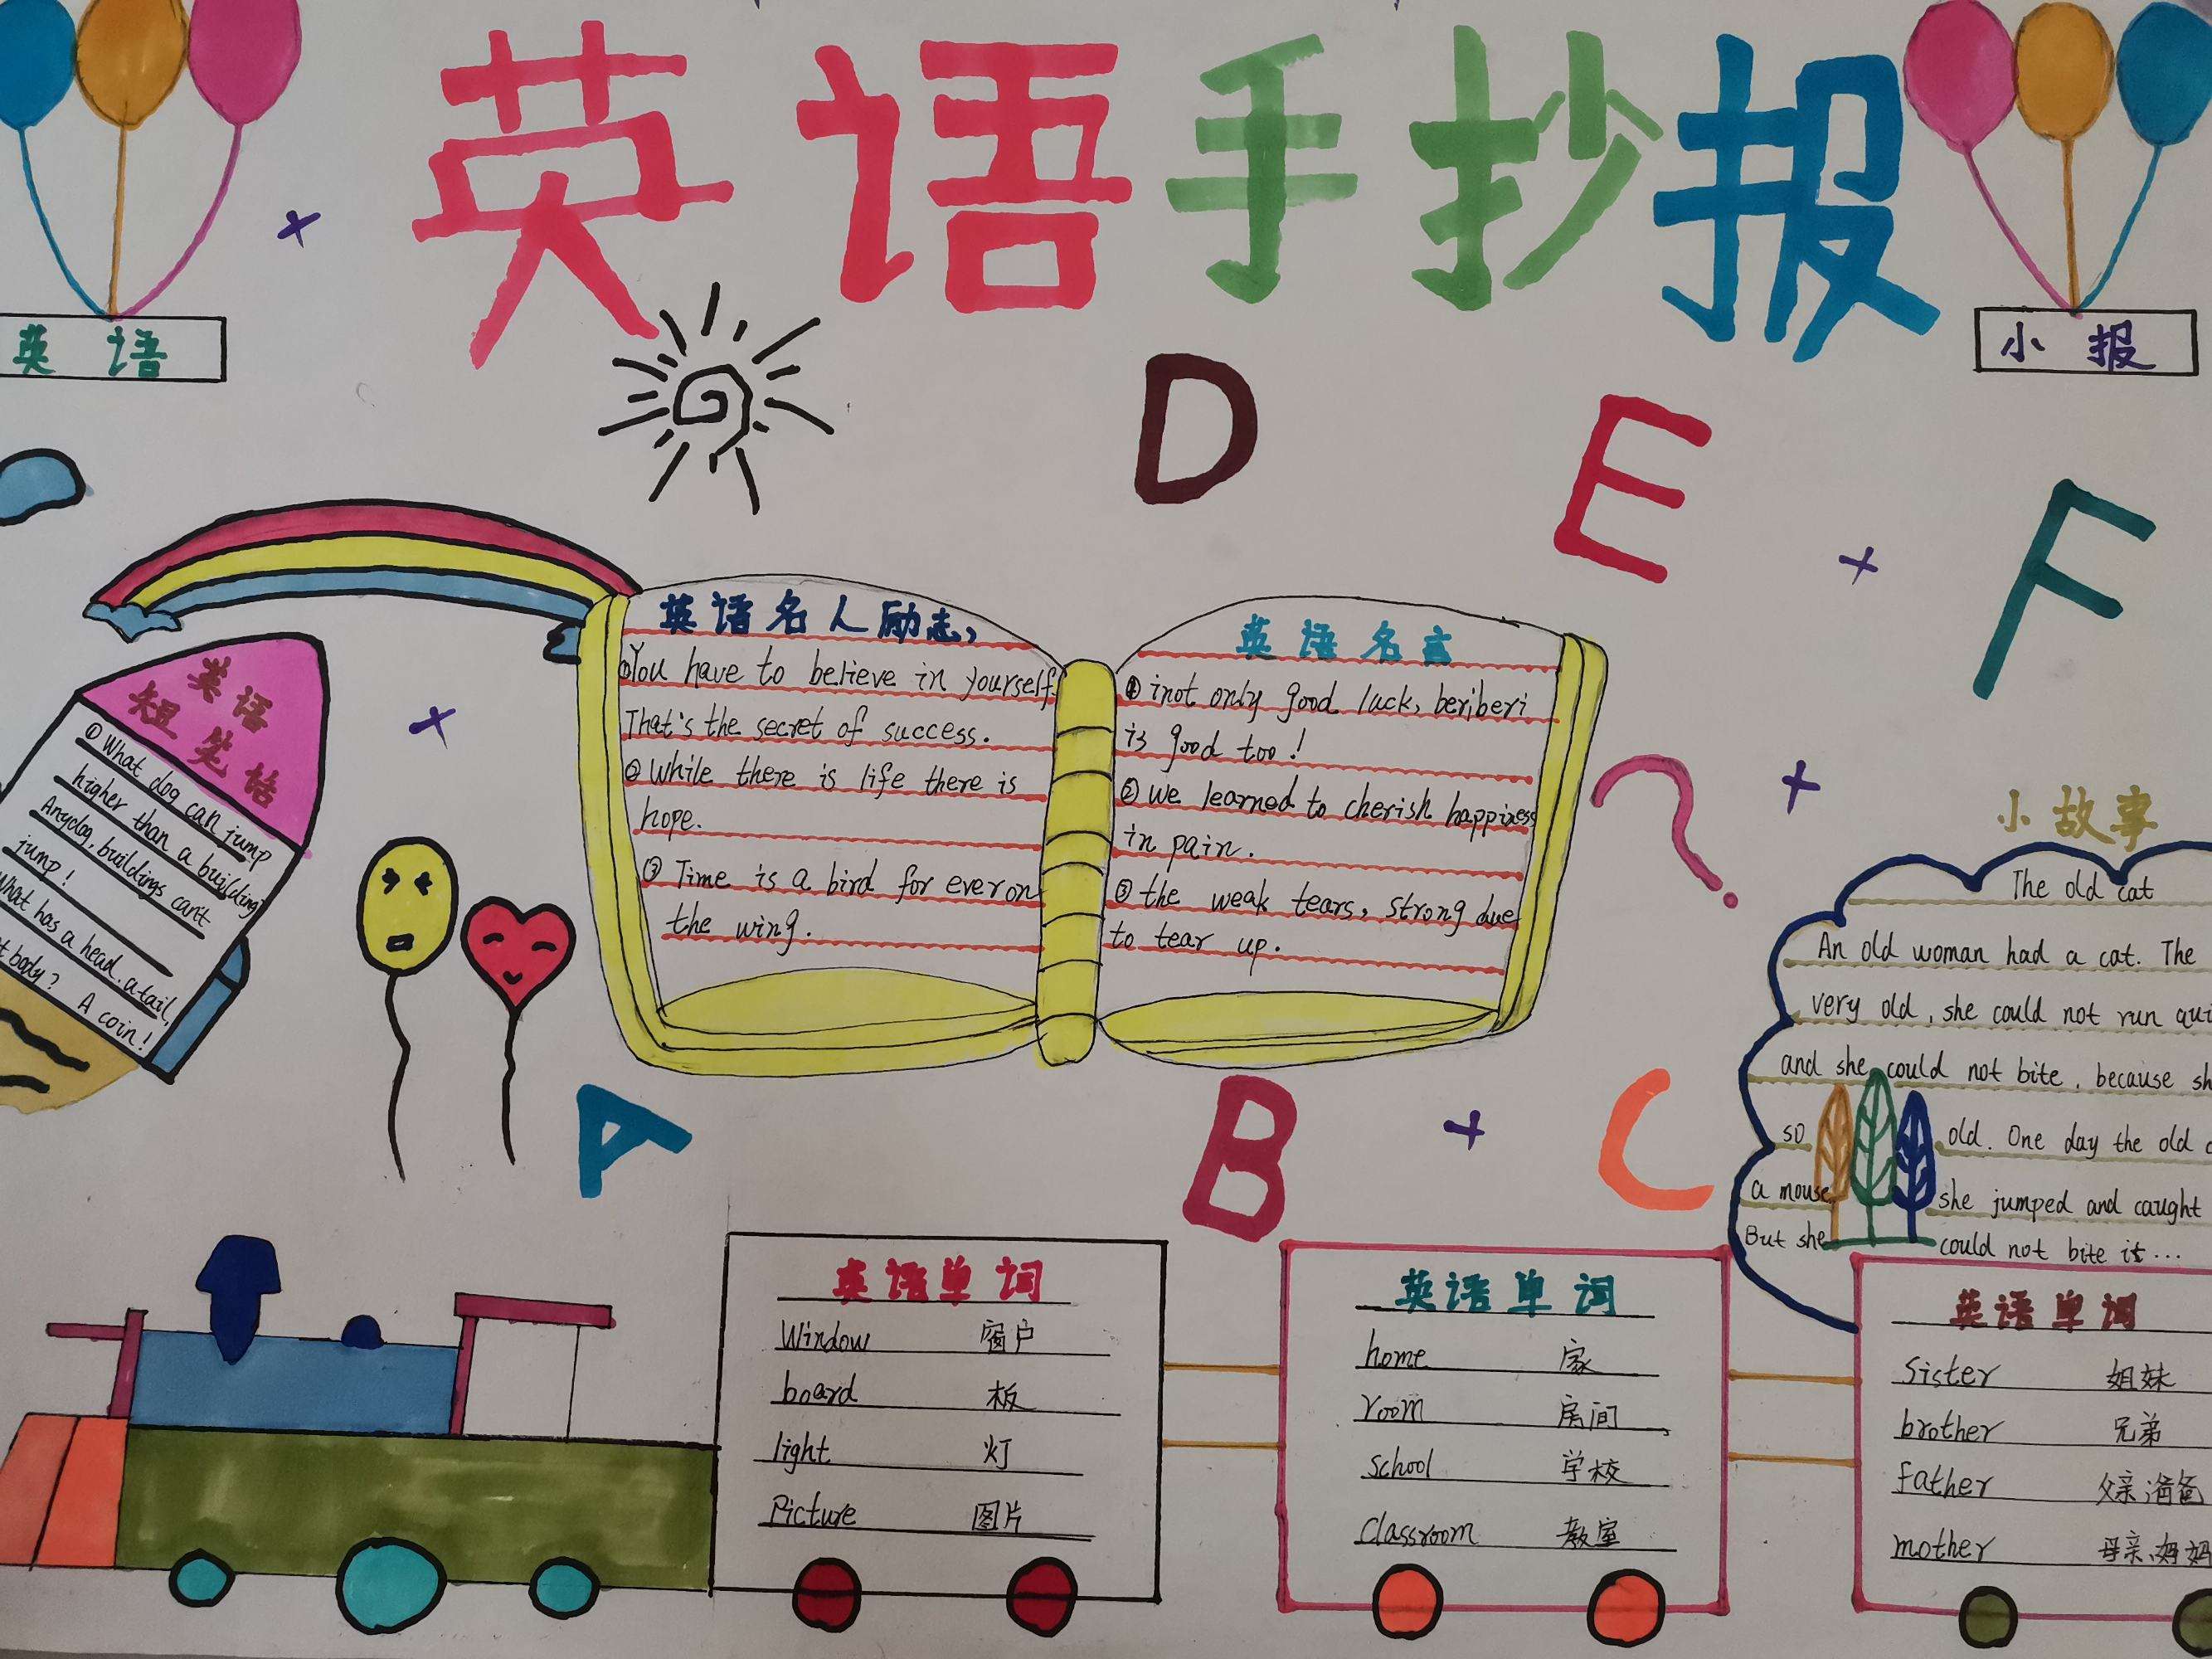 英语手抄报
英语
小报
D
E
F
英语
短笑话
①What dog can jump
higher than a building
Anydog, buildings can't
jump!
What has a head, a tail,
body? A coin!
英语名人励志,
①You have to believe in yourself.
That's the secret of success.
②While there is life there is
hope.
③Time is a bird for ever on
the wing.
英语名言
①inot only good luck, beriberi
is good too!
②we learned to cherish happiness
in pain.
③the weak tears, strong due
to tear up.
?
小故事
The old cat
An old woman had a cat. The
very old, she could not run
and she could not bite, because
so old. One day the old
a mouse, she jumped and caught
But she could not bite it...
A
B
C
英语单词
Window 窗户
board 板
light 灯
Picture 图片
英语单词
home 家
room 房间
school 学校
classroom 教室
英语单词
Sister 姐妹
brother 兄弟
Father 父亲,爸爸
mother 母亲,妈妈